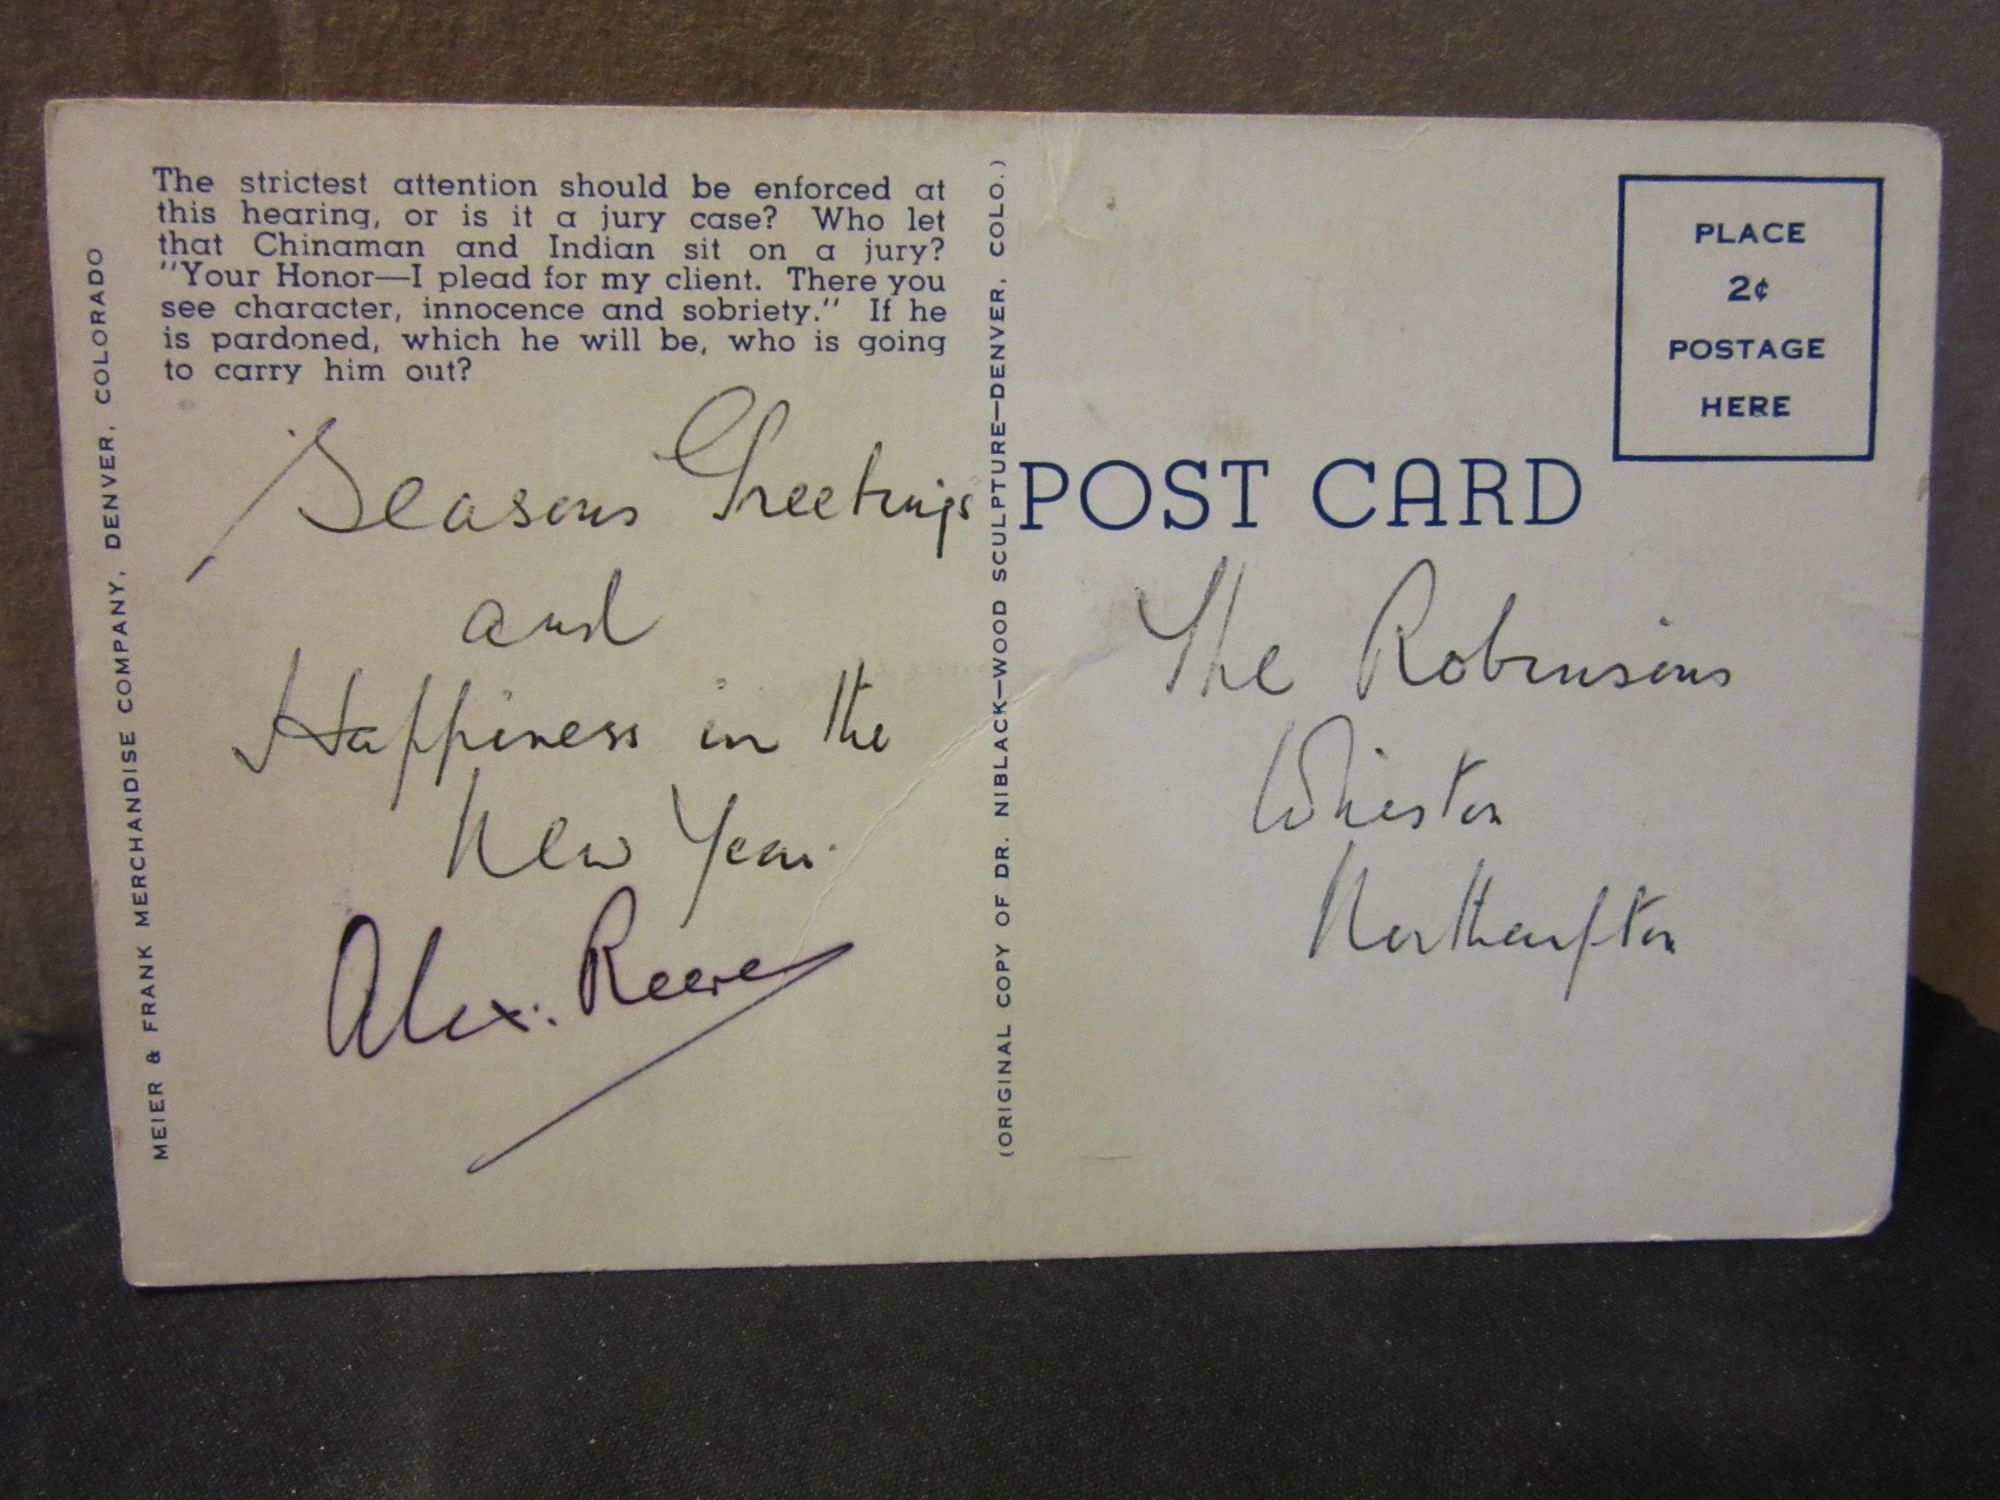 The strictest attention should be enforced at
this hearing, or is it a jury case? Who let
that Chinaman and Indian sit on a jury?
"Your Honor—I plead for my client. There you
see character, innocence and sobriety." If he
is pardoned, which he will be, who is going
to carry him out?
Seasons Greetings
and
Happiness in the
New Year.
Alex. Reeve
MEIER & FRANK MERCHANDISE COMPANY, DENVER, COLORADO
(ORIGINAL COPY OF DR. NIBLACK—WOOD SCULPTURE—DENVER, COLO.)
PLACE
2¢
POSTAGE
HERE
POST CARD
The Robinsons
Northampton